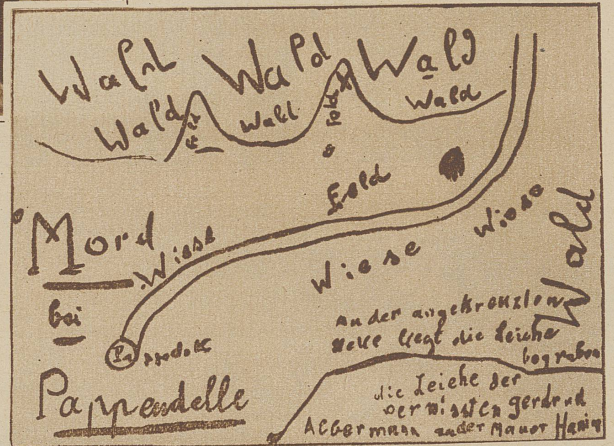 Wald Wald Wald
Wald Wald Wald
Feld
Mord
Wiese
Wiese
Wiese
Wald
bei
Pappendelle
An der angekreuzten
Stelle liegt die Leiche
begraben
die Leiche der
vermissten gerdrud
Albermann an der Mauer Haniel